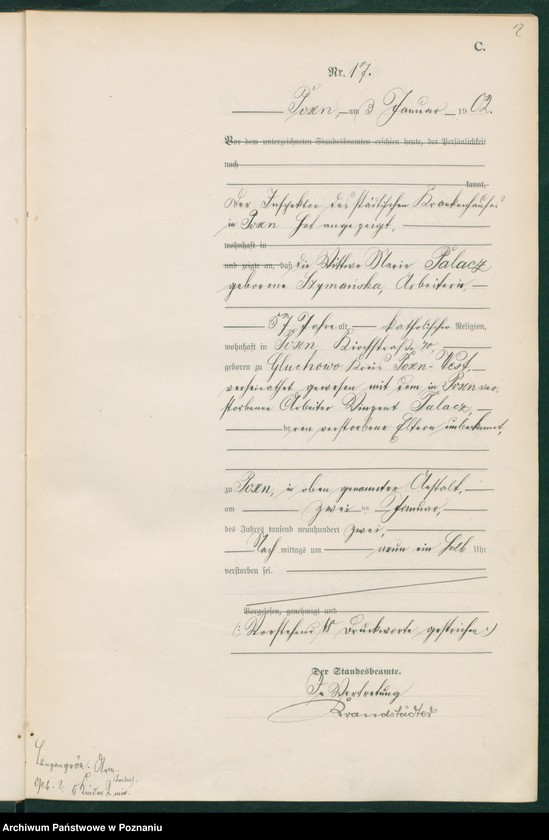 2
C.
Nr. 17.
Posen, am 3 Januar 1902.
Vor dem unterzeichneten Standesbeamten erschien heute, der Persönlichkeit
nach
kannt,
Der Inspektor des städtischen Krankenhauses
in Posen hat angezeigt,
wohnhaft in
und zeigte an, daß die Wittwe Marie Palacz
geborene Szymańska, Arbeiterin,
57 Jahre alt, katholischer Religion,
wohnhaft in Posen, Kirchstraße
geboren zu Gluchowo Kreis Posen-West,
verheirathet gewesen mit dem in Posen ver-
storbenen Arbeiter Vinzent Palacz,
deren verstorbene Eltern unbekannt,
zu Posen, in oben genannter Anstalt,
am zwei ten Januar,
des Jahres tausend neunhundert zwei,
Nach mittags um neun ein halb Uhr
verstorben sei.
Vorgelesen, genehmigt und
(: Vorstehend Druckworte gestrichen :)
Der Standesbeamte.
In Vertretung
Brandstädter
5 Kinder 2
Archiwum Państwowe w Poznaniu